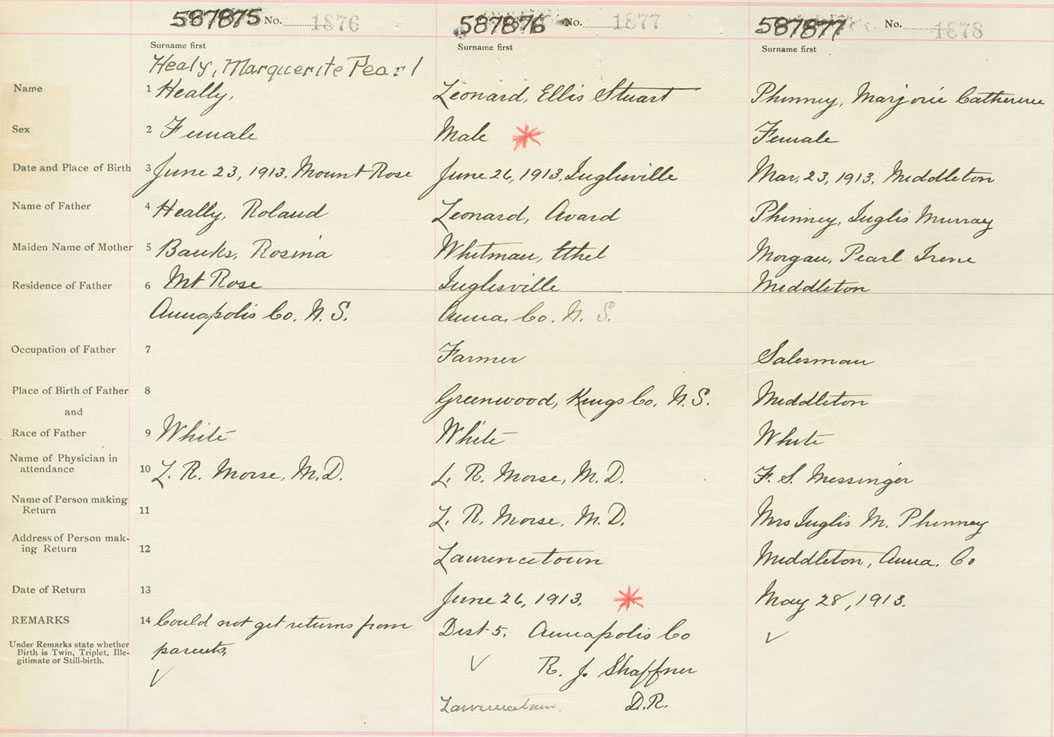 587875 No. 1876
587876 No. 1877
587877 No. 1878
Surname first
Surname first
Surname first
Healy, Marguerite Pearl
Name 1 Heally, Leonard, Ellis Stuart Phinney, Marjorie Catherine
Sex 2 Female Male * Female
Date and Place of Birth 3 June 23, 1913, Mount Rose June 26, 1913, Inglisville Mar. 23, 1913, Middleton
Name of Father 4 Heally, Roland Leonard, Avard Phinney, Inglis Murray
Maiden Name of Mother 5 Banks, Rosina Whitman, Ethel Morgan, Pearl Irene
Residence of Father 6 Mt Rose Inglisville Middleton
Annapolis Co. N.S. Anna. Co. N. S.
Occupation of Father 7 Farmer Salesman
Place of Birth of Father 8 Greenwood, Kings Co. N.S. Middleton
and
Race of Father 9 White White White
Name of Physician in
attendance 10 L. R. Morse, M.D. L. R. Morse, M.D. F. S. Messinger
Name of Person making
Return 11 L. R. Morse, M.D. Mrs Inglis M. Phinney
Address of Person mak-
ing Return 12 Lawrencetown Middleton, Anna. Co
Date of Return 13 June 26, 1913. * May 28, 1913.
REMARKS 14 Could not get returns from Dist 5. Annapolis Co √
Under Remarks state whether
Birth is Twin, Triplet, Ille-
gitimate or Still-birth.
parents. √ R. J. Shaffner
√ Lawrencetown. D.R.